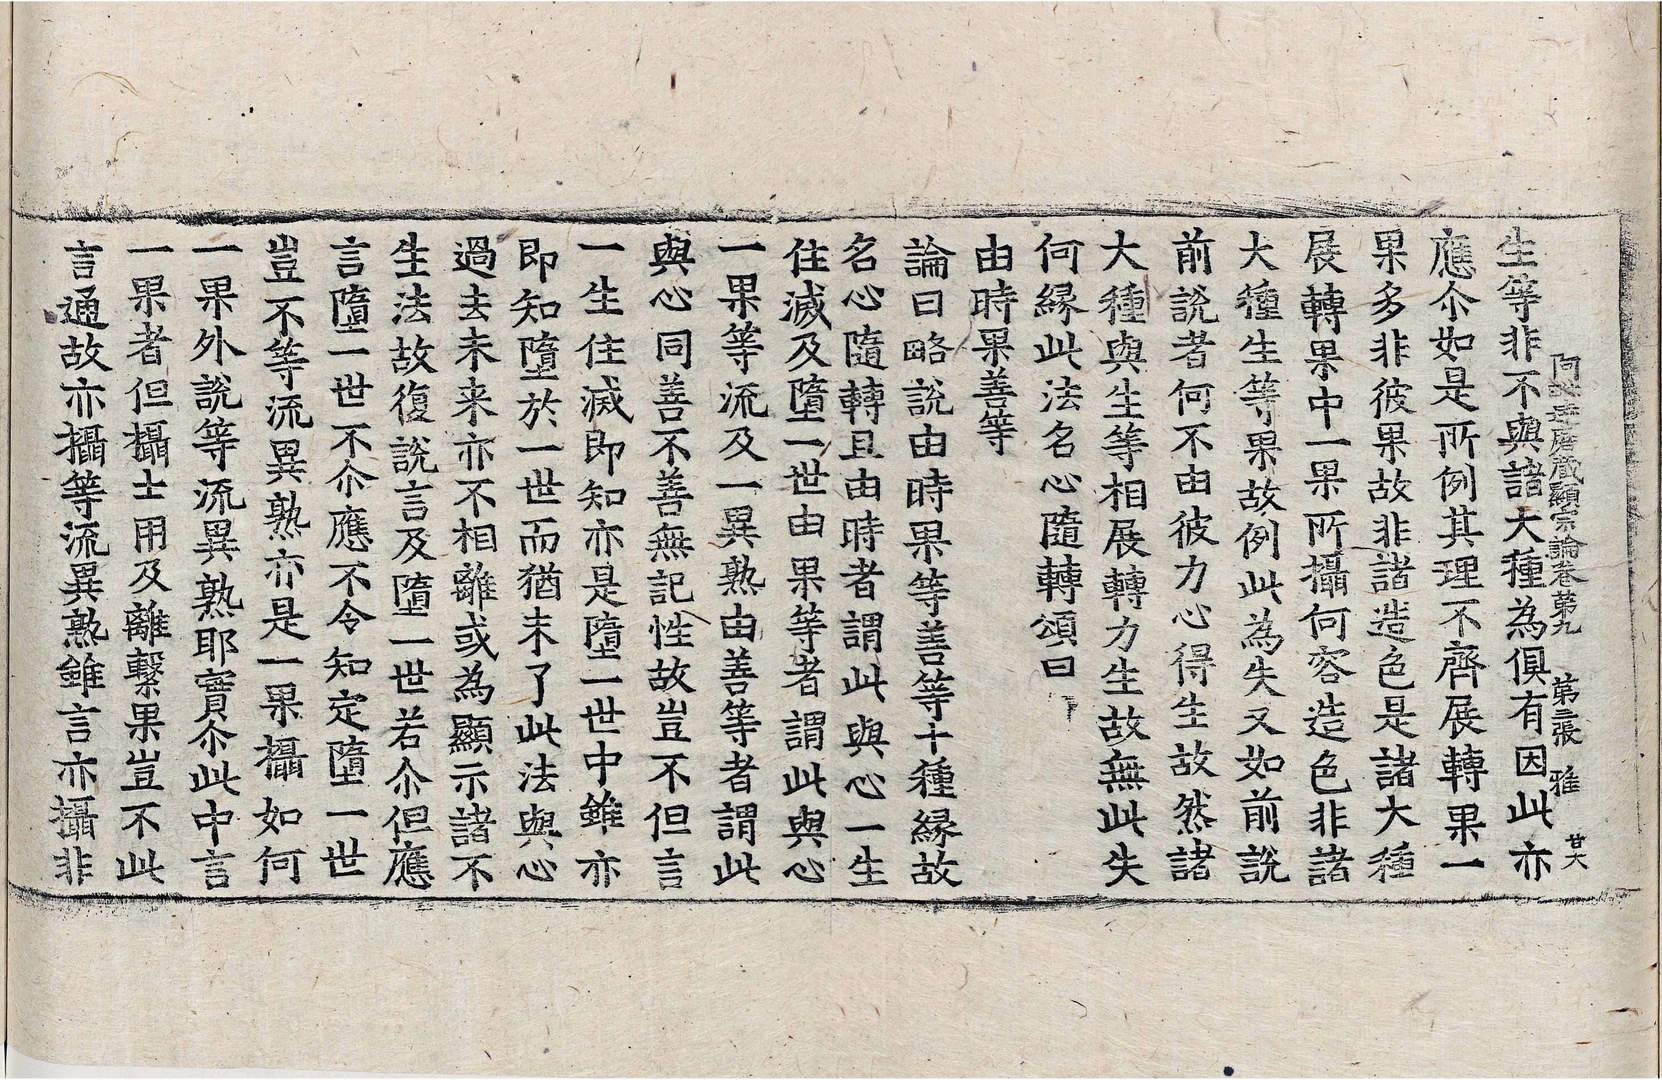 阿毗達磨藏顯宗論卷第九 第三張 雅 甘大
生等非不與諸大種為俱有因此亦
應尒如是所例其理不齊展轉果一
果多非彼果故非諸造色是諸大種
展轉果中一果所攝何容造色非諸
大種生等果故例此為失又如前說
前說者何不由彼力心得生故然諸
大種與生等相展轉力生故無此失
何緣此法名心隨轉頌曰
由時果善等
論曰略說由時果等善等十種緣故
名心隨轉且由時者謂此與心一生
住滅及墮一世由果等者謂此與心
一果等流及一異熟由善等者謂此
與心同善不善無記性故豈不但言
一生住滅即知亦是墮一世中雖亦
即知墮於一世而猶未了此法與心
過去未来亦不相離或為顯示諸不
生法故復說言及墮一世若尒但應
言墮一世不尒應不令知定墮一世
豈不等流異熟亦是一果攝如何
一果外說等流異熟耶實尒此中言
一果者但攝士用及離繫果豈不此
言通故亦攝等流異熟雖言亦攝非